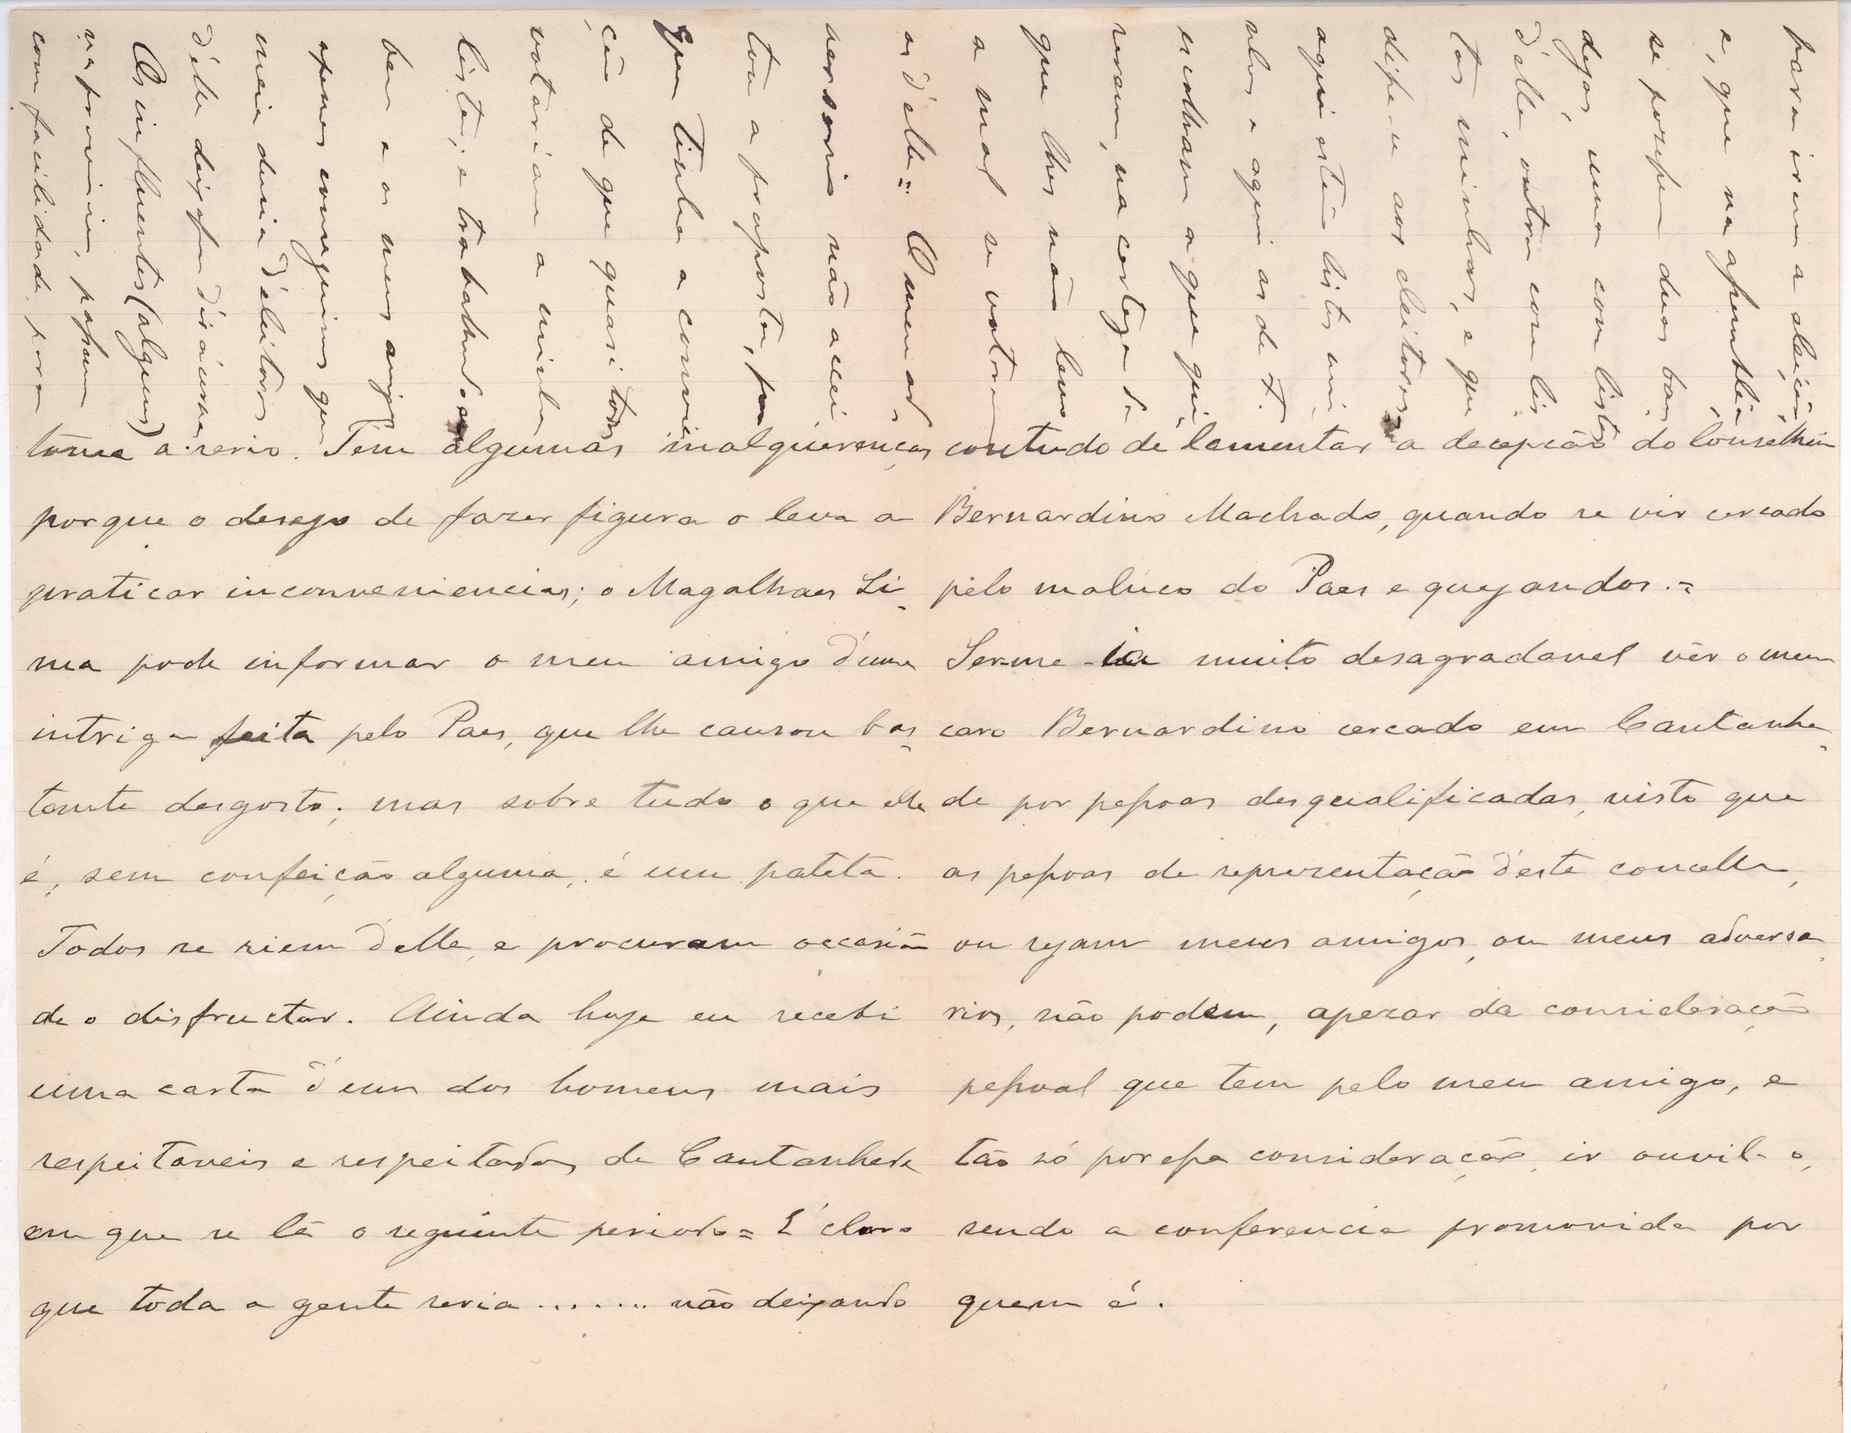 tome a serio. Tem algumas malquerenças
porque o desejo de fazer figura o leva a
praticar inconveniencias; o Magalhaes Li-
ma pode informar o meu amigo d'uma
intriga feita pelo Paes, que lhe causou bas-
tante desgosto; mas sobre tudo o que elle
é, sem confeição alguma, é um pateta.
Todos se riem d'elle, e procuram occasião
de o disfructar. Ainda hoje eu recebi
uma carta d'um dos homens mais
respeitaveis e respeitados de Cantanhede
em que se lê o seguinte periodo = É claro
que toda a gente seria ....... não deixando
contudo de lamentar a decepção do Conselheiro
Bernardino Machado, quando se vir cercado
pelo maluco do Paes e quejandos. =
Ser-me-ia muito desagradavel vêr o meu
caro Bernardino cercado em Cantanhe-
de por pessoas desqualificadas, visto que
as pessoas de representação d'este concelho,
ou sejam meus amigos, ou meus adversa-
rios, não podem, apezar da consideração
pessoal que tem pelo meu amigo, e
tão só por essa consideração, ir ouvil-o,
sendo a conferencia promovida por
quem é.
para irem a eleição,
e, que na assembleia
se pozessem duas ban-
dejas, uma com listas
d'elle, outra com lis-
tas minhas, e que
disse eu aos eleitores
aqui estão listas mi-
nhas e aqui as de F.
escolham a que qui-
zeram, na certeza de
que lhes não levo
a mal se votarem
as d'elle = O meu ad-
versario não accei-
tou a proposta, por
que tinha a convic-
ção de que quasi todos
votariam a minha
lista; e trabalhando
bem e os meus amigos
apenas conseguimos que
meia duzia d'eleitores
d'elle deixassem d'ir á urna
Os influentes (alguns)
na provincia, passam
com facilidade, para